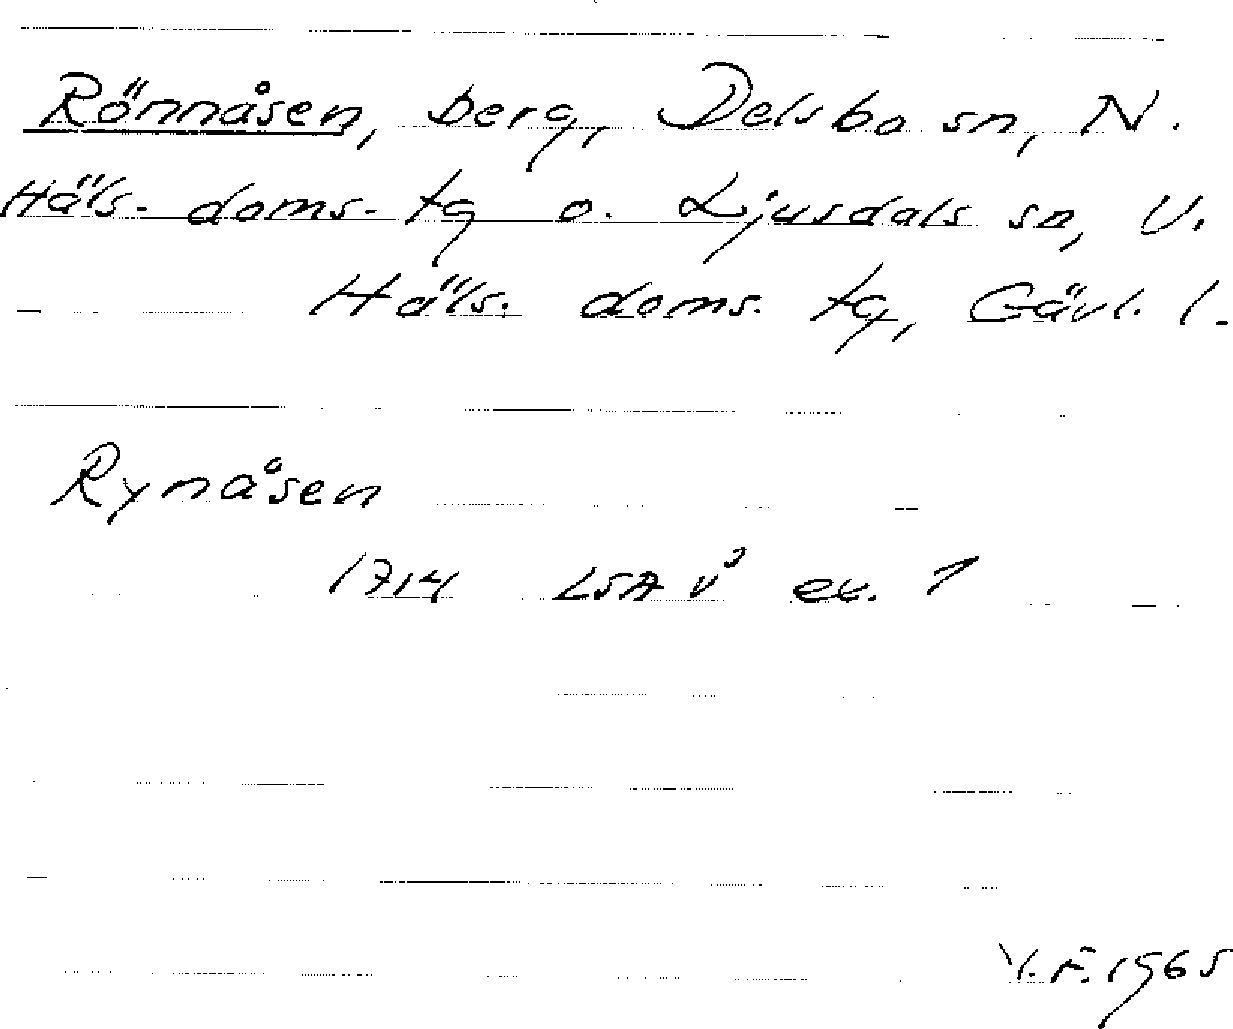 Rönnåsen, berg, Delsbo sn, N.
Häls. doms. tg o. Ljusdals sn, V.
Häls. doms. tg, Gävl. l.
Rynåsen
1714 LSA v³ ex. 1
Y.F. 1965